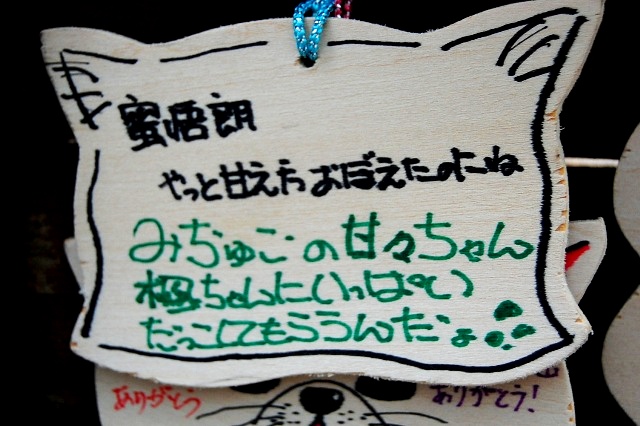 蜜悟朗
やっと甘えたおぼえたのにね
みぢゅこの甘々ちゃん
楓ちゃんにいっぱい
だっこしてもらうんだょ
ありがとう
ありがとう!